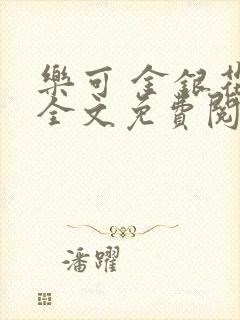 樂可 金銀花
全文免費閱
潘躍